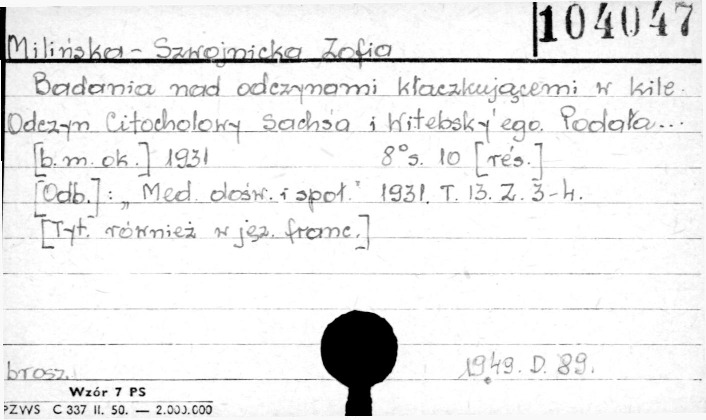 104047
Milińska-Szwojnicka Zofia
Badania nad odczynami kłaczkującemi w kile.
Odczyn Citocholowy Sachs'a i Witebsky'ego. Podała...
[b.m.ok.] 1931 8°s. 10 [rés.]
[Odb.]: „Med. dośw. i społ." 1931. T. 13. Z. 3-4.
[Tyt. również w jęz. franc.]
brosz. 1949. D. 89.
Wzór 7 PS
PZWS C 337 II. 50. — 2.000.000